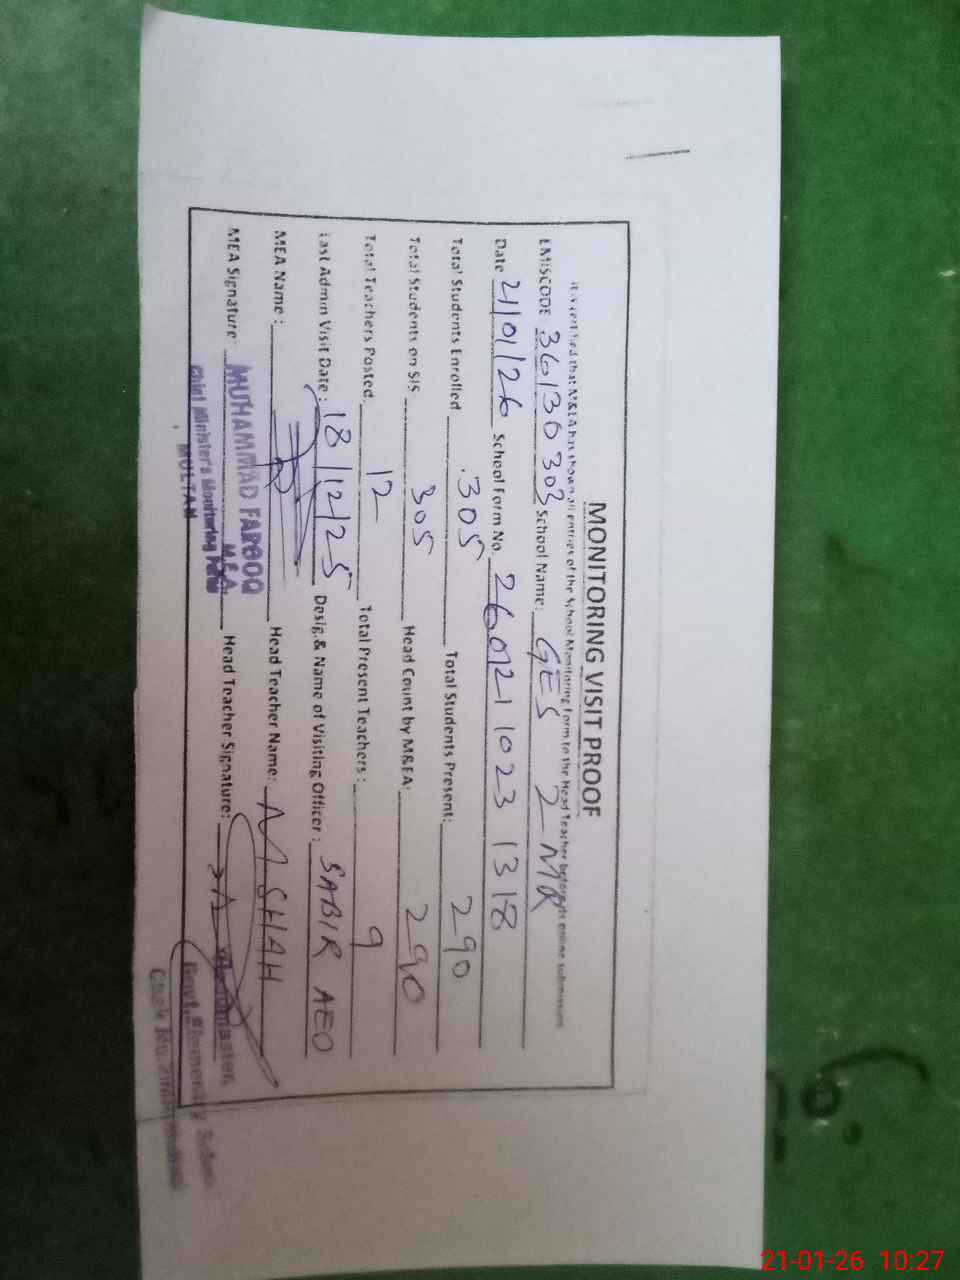 MONITORING VISIT PROOF
It is certified that M&EA has shown all entries of the School Monitoring Form to the Head Teacher before its online submission
EMISCODE 36130303 School Name: GES 2-MR
Date 21/01/26 School Form No. 260121102313 18
Total Students Enrolled 305 Total Students Present: 290
Total Students on SIS 305 Head Count by M&EA: 290
Total Teachers Posted. 12 Total Present Teachers : 9
Last Admin Visit Date : 18/12/25 Desig.& Name of Visiting Officer : SABIR AEO
MEA Name : Head Teacher Name: M SHAH
MEA Signature Head Teacher Signature:
MUHAMMAD FAROOQ
M.E.A.
Chief Minister's Monitoring Force
MULTAN
Headmaster
Govt. Elementary School
Chak No.
21-01-26 10:27